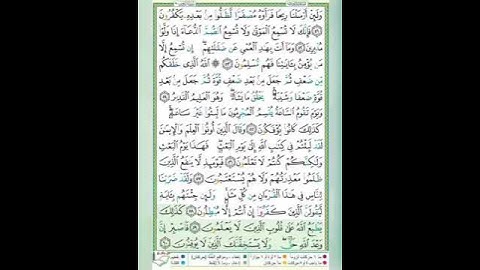 وَلَئِنْ أَرْسَلْنَا رِيحًا فَرَأَوْهُ مُصْفَرًّا لَّظَلُّوا۟ مِنۢ بَعْدِهِۦ يَكْفُرُونَ
۝٥١ فَإِنَّكَ لَا تُسْمِعُ ٱلْمَوْتَىٰ وَلَا تُسْمِعُ ٱلصُّمَّ ٱلدُّعَآءَ إِذَا وَلَّوْا۟
مُدْبِرِينَ ۝٥٢ وَمَآ أَنتَ بِهَٰدِ ٱلْعُمْىِ عَن ضَلَٰلَتِهِمْ ۖ إِن تُسْمِعُ إِلَّا
مَن يُؤْمِنُ بِـَٔايَٰتِنَا فَهُم مُّسْلِمُونَ ۝٥٣ ۞ ٱللَّهُ ٱلَّذِى خَلَقَكُم
مِّن ضَعْفٍ ثُمَّ جَعَلَ مِنۢ بَعْدِ ضَعْفٍ قُوَّةً ثُمَّ جَعَلَ مِنۢ بَعْدِ
قُوَّةٍ ضَعْفًا وَشَيْبَةً ۚ يَخْلُقُ مَا يَشَآءُ ۖ وَهُوَ ٱلْعَلِيمُ ٱلْقَدِيرُ ۝٥٤
وَيَوْمَ تَقُومُ ٱلسَّاعَةُ يُقْسِمُ ٱلْمُجْرِمُونَ مَا لَبِثُوا۟ غَيْرَ سَاعَةٍ ۚ
كَذَٰلِكَ كَانُوا۟ يُؤْفَكُونَ ۝٥٥ وَقَالَ ٱلَّذِينَ أُوتُوا۟ ٱلْعِلْمَ وَٱلْإِيمَٰنَ
لَقَدْ لَبِثْتُمْ فِى كِتَٰبِ ٱللَّهِ إِلَىٰ يَوْمِ ٱلْبَعْثِ ۖ فَهَٰذَا يَوْمُ ٱلْبَعْثِ
وَلَٰكِنَّكُمْ كُنتُمْ لَا تَعْلَمُونَ ۝٥٦ فَيَوْمَئِذٍ لَّا يَنفَعُ ٱلَّذِينَ
ظَلَمُوا۟ مَعْذِرَتُهُمْ وَلَا هُمْ يُسْتَعْتَبُونَ ۝٥٧ وَلَقَدْ ضَرَبْنَا
لِلنَّاسِ فِى هَٰذَا ٱلْقُرْءَانِ مِن كُلِّ مَثَلٍ ۚ وَلَئِن جِئْتَهُم بِـَٔايَةٍ
لَّيَقُولَنَّ ٱلَّذِينَ كَفَرُوٓا۟ إِنْ أَنتُمْ إِلَّا مُبْطِلُونَ ۝٥٨ كَذَٰلِكَ
يَطْبَعُ ٱللَّهُ عَلَىٰ قُلُوبِ ٱلَّذِينَ لَا يَعْلَمُونَ ۝٥٩ فَٱصْبِرْ إِنَّ
وَعْدَ ٱللَّهِ حَقٌّ ۖ وَلَا يَسْتَخِفَّنَّكَ ٱلَّذِينَ لَا يُوقِنُونَ ۝٦٠